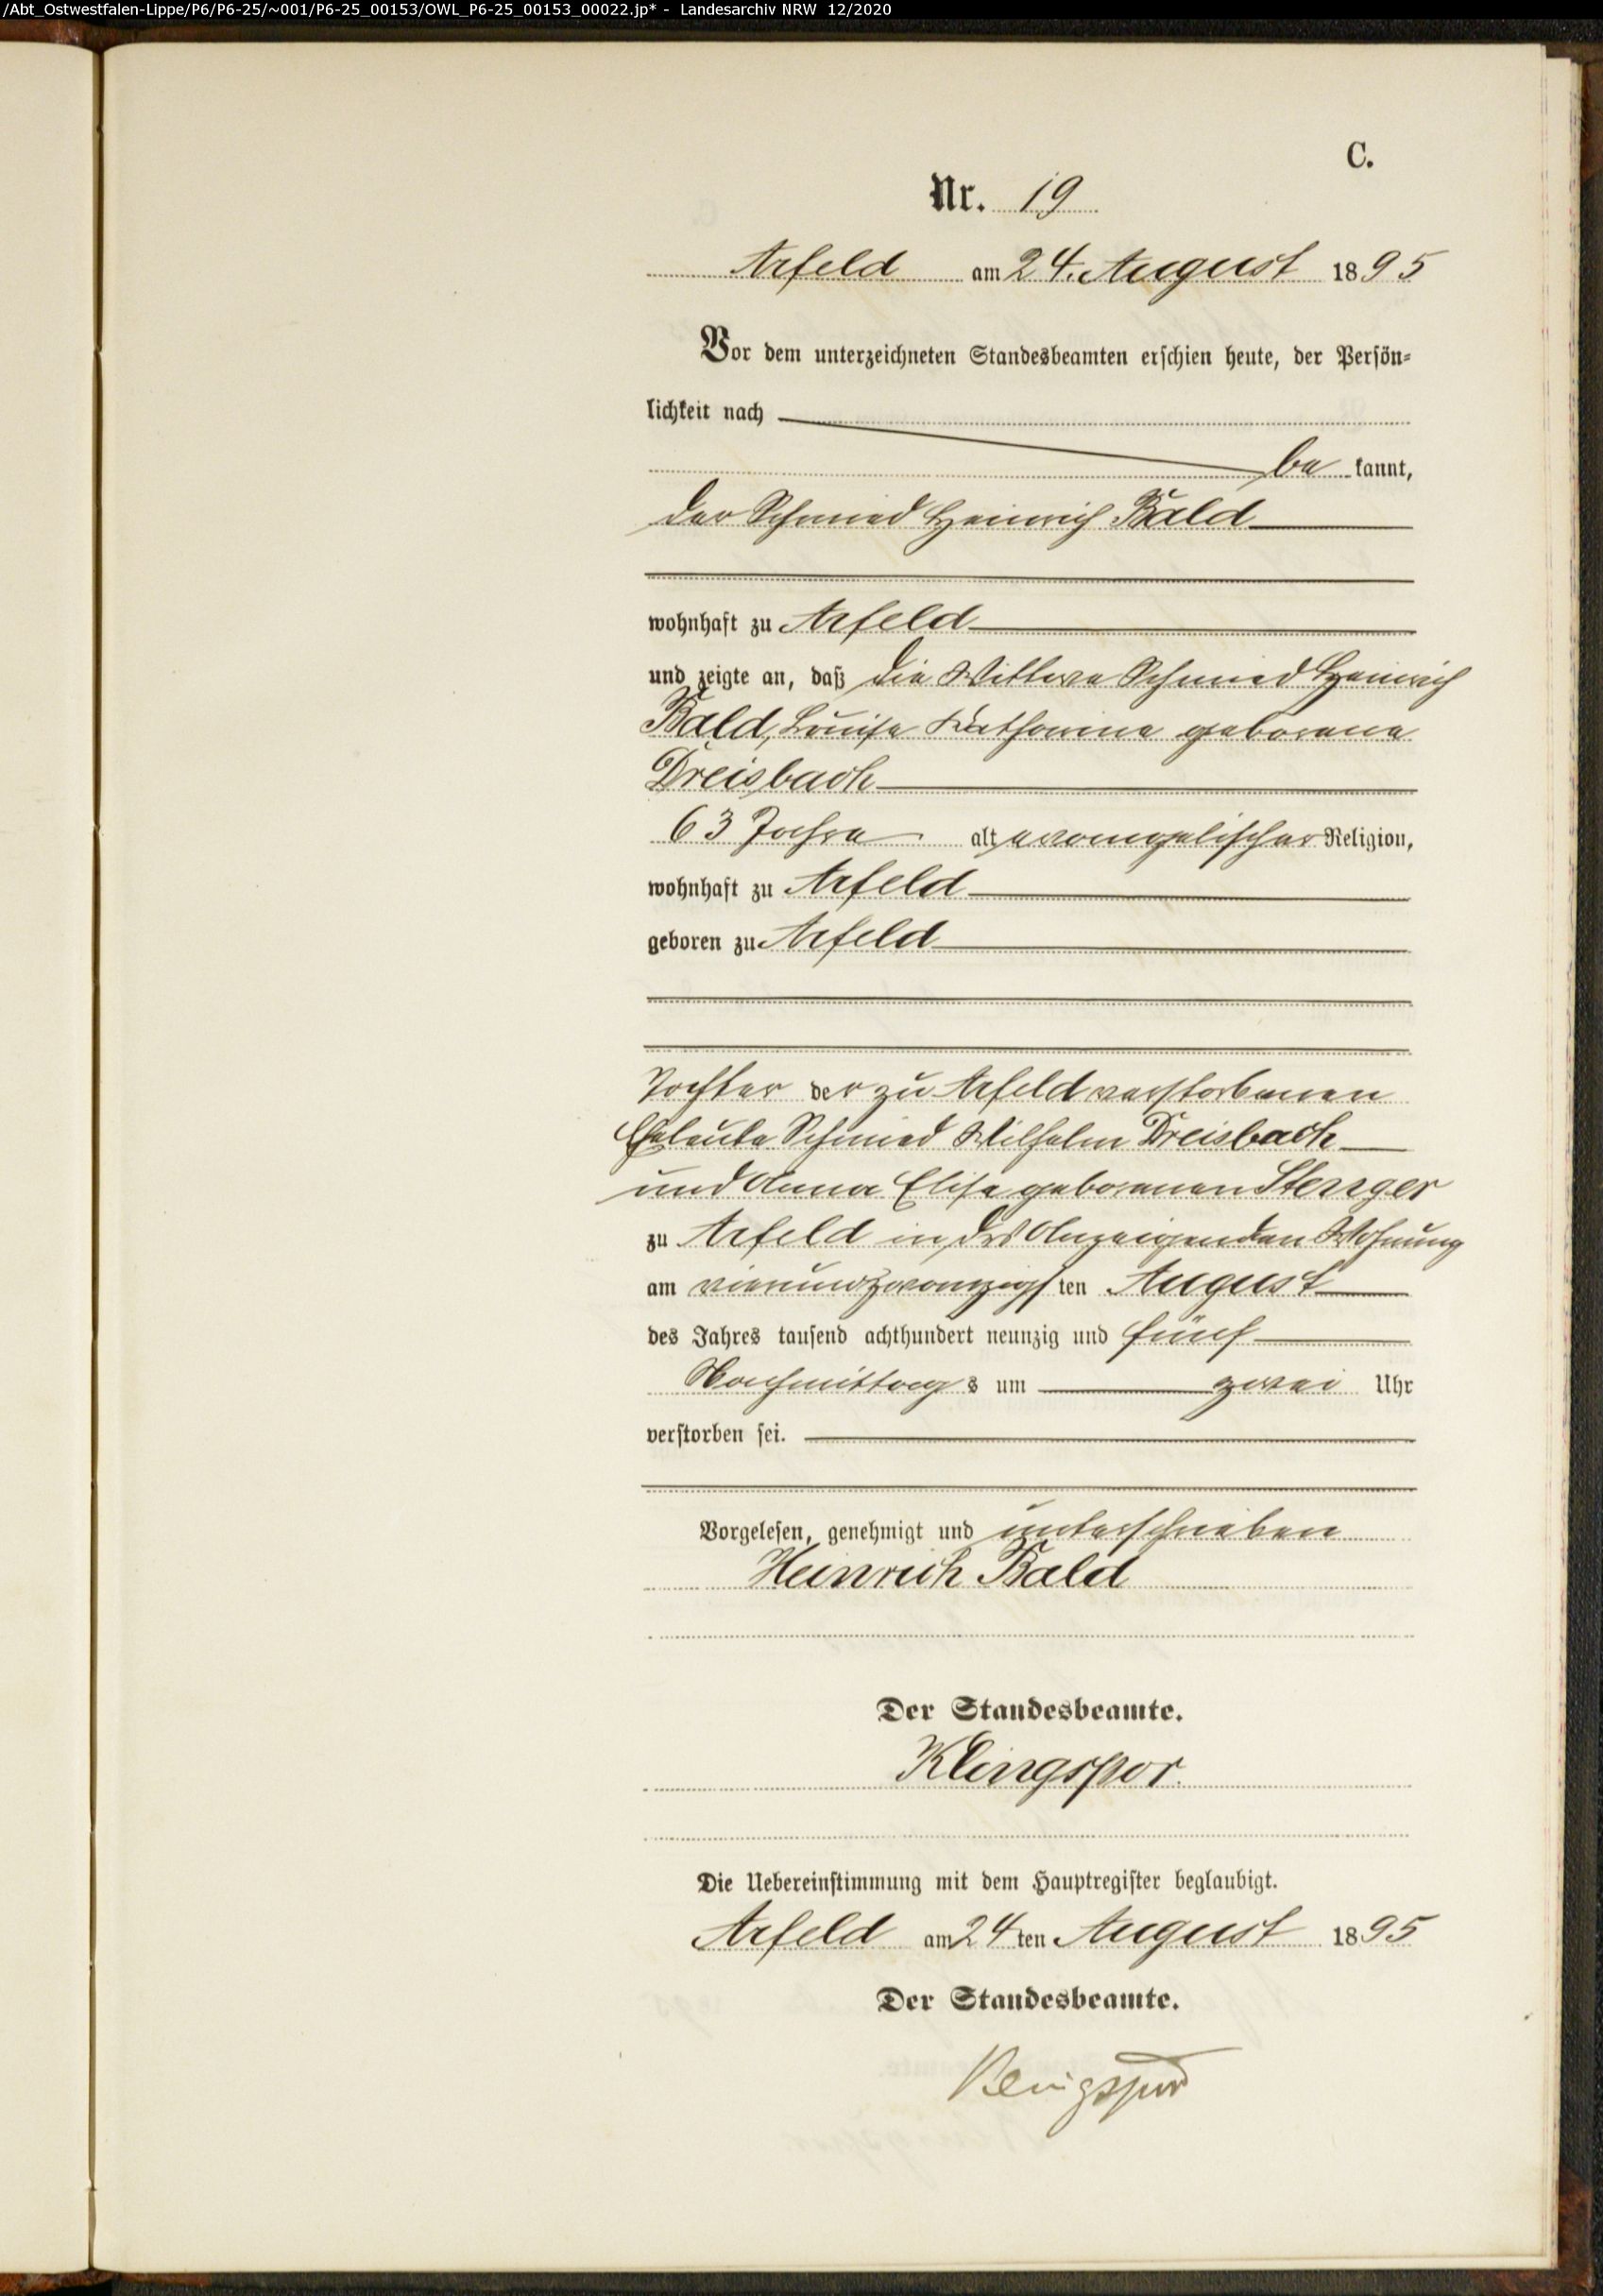 /Abt_Ostwestfalen-Lippe/P6/P6-25/~001/P6-25_00153/OWL_P6-25_00153_00022.jp* - Landesarchiv NRW 12/2020
C.
Nr. 19
Arfeld am 24. August 1895
Vor dem unterzeichneten Standesbeamten erschien heute, der Persön-
lichkeit nach
be kannt,
der Schmied Heinrich Bald
wohnhaft zu Arfeld
und zeigte an, daß die Wittwe Schmied Heinrich
Bald, Louise Katharine geborene
Dreisbach
63 Jahre alt evangelischer Religion,
wohnhaft zu Arfeld
geboren zu Arfeld
Tochter der zu Arfeld verstorbenen
Eheleute Schmied Wilhelm Dreisbach
und Anna Elise geborenen Stenger
zu Arfeld in des Anzeigenden Wohnung
am vierundzwanzigsten August
des Jahres tausend achthundert neunzig und fünf
Nachmittags um zwei Uhr
verstorben sei.
Vorgelesen, genehmigt und unterschrieben
Heinrich Bald
Der Standesbeamte.
Klingspor.
Die Uebereinstimmung mit dem Hauptregister beglaubigt.
Arfeld am 24ten August 1895
Der Standesbeamte.
Klingspor